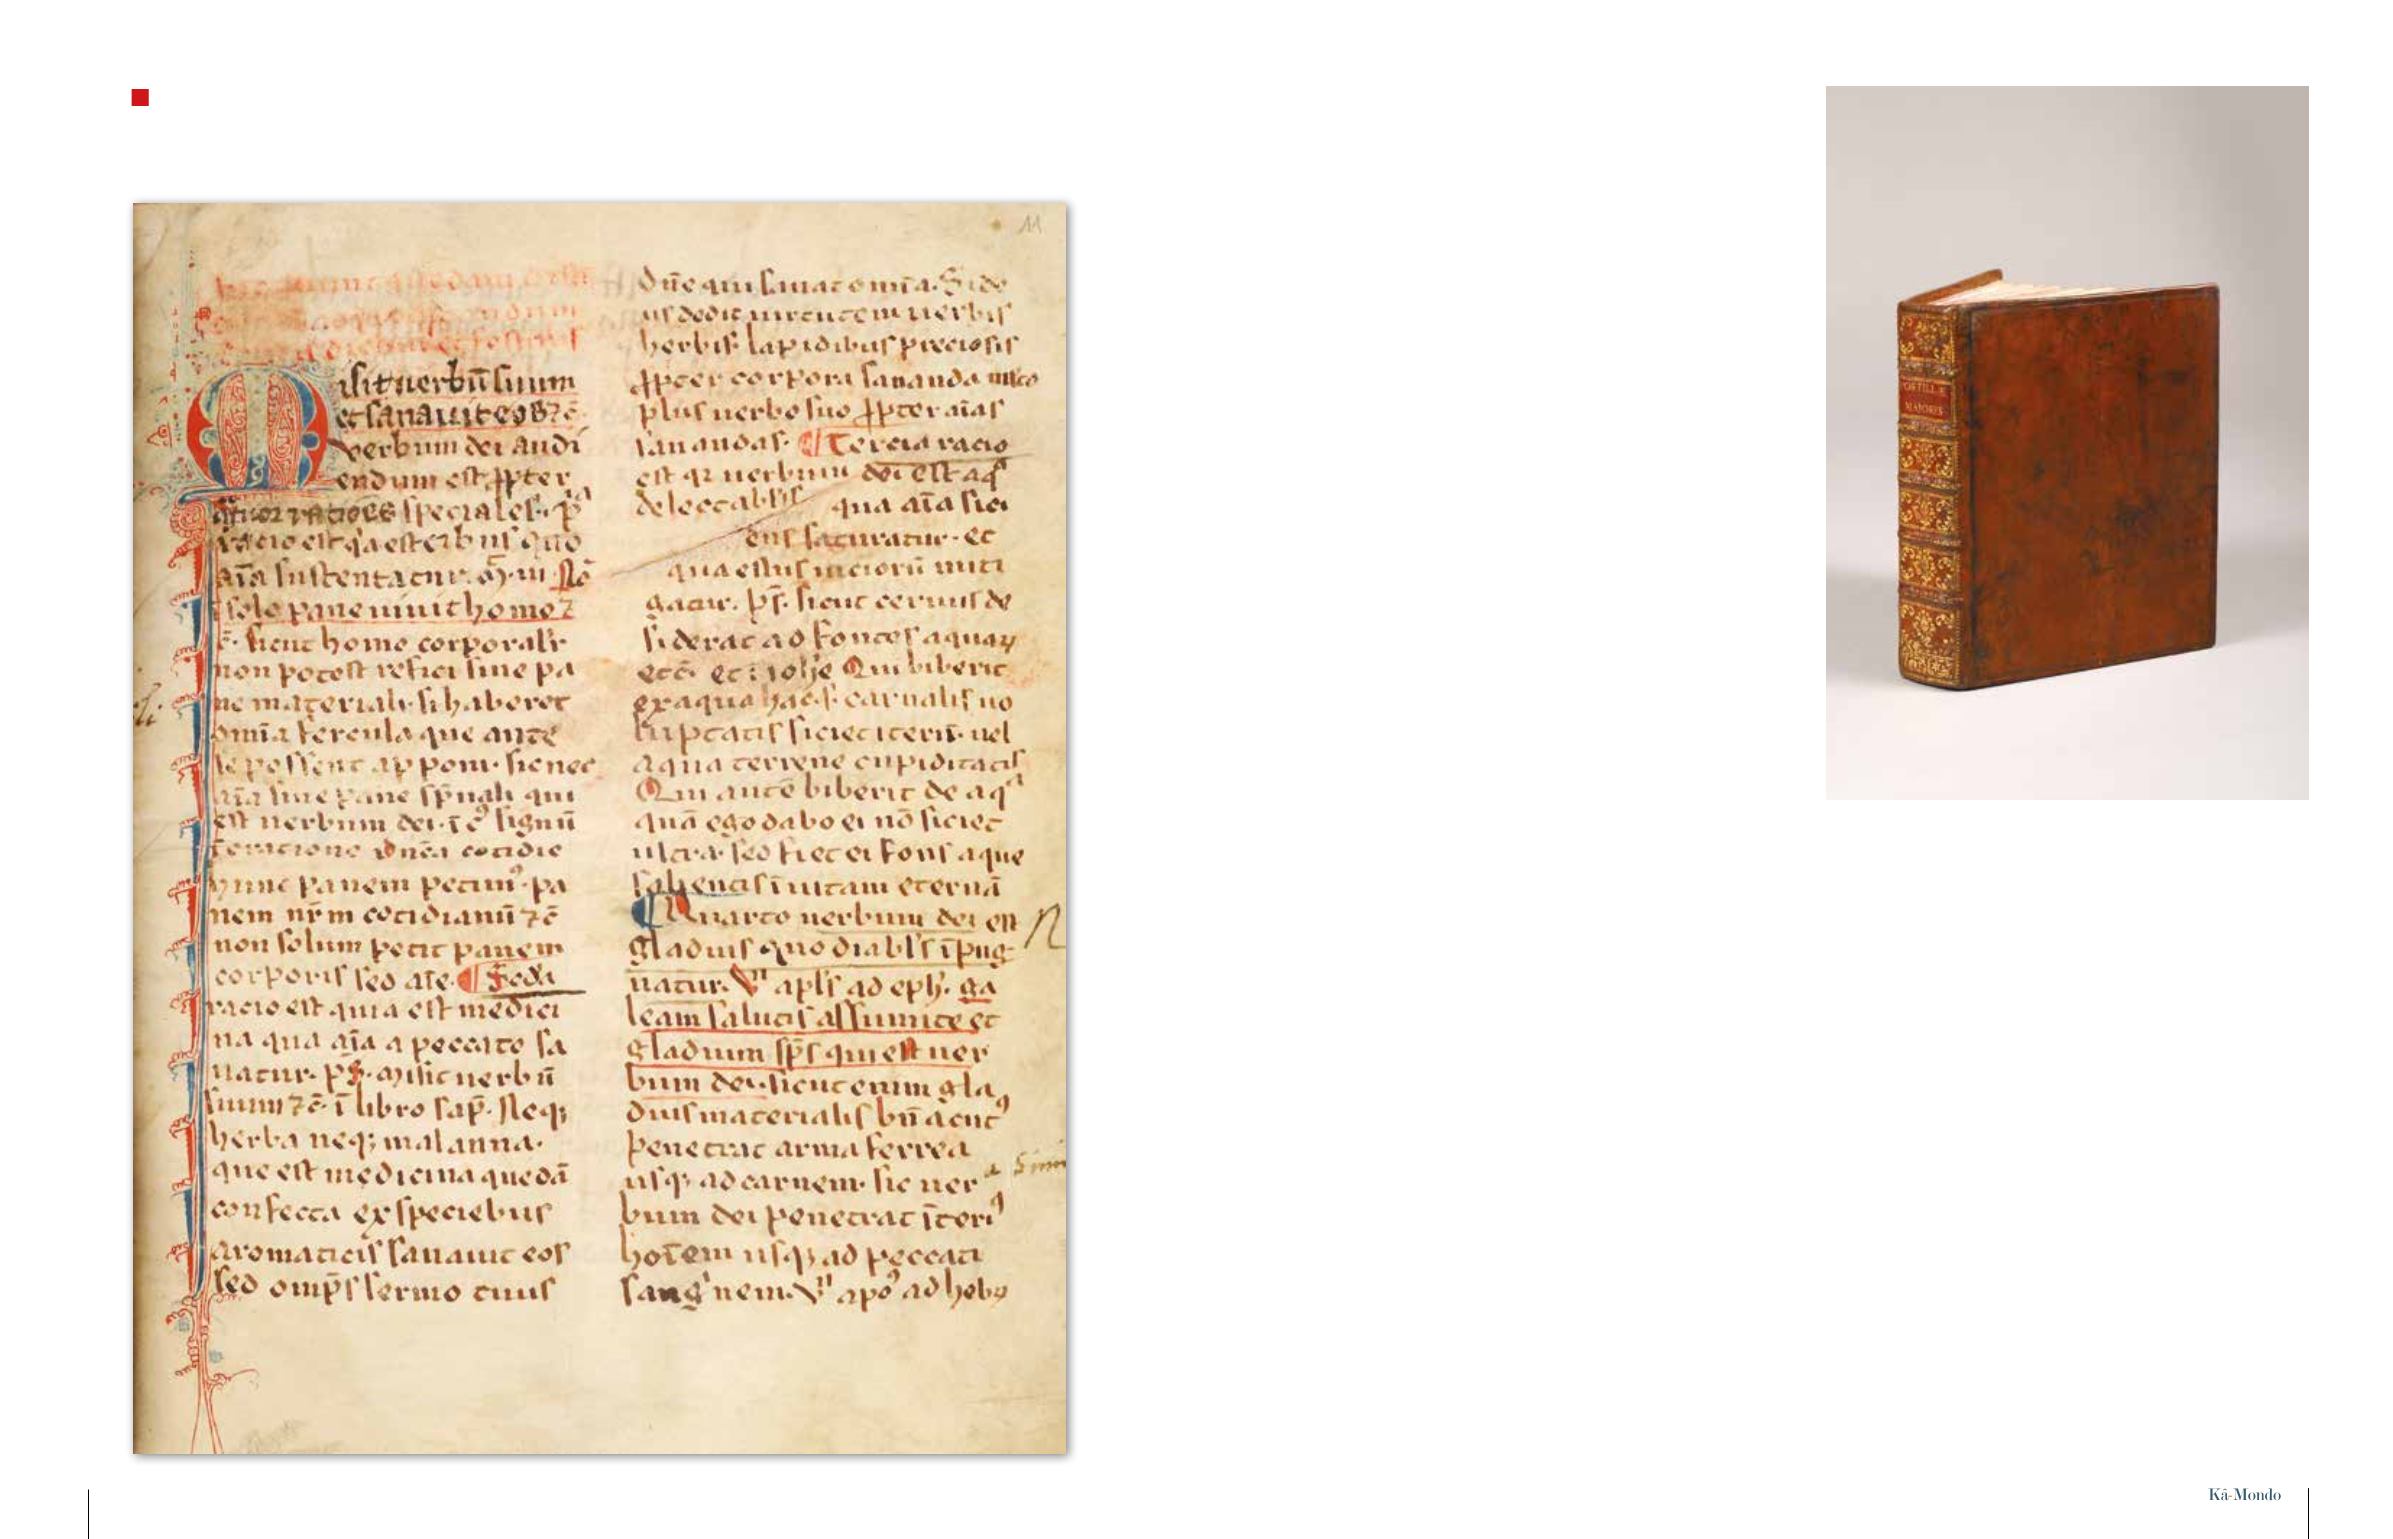 11
isit uerbū suum
et sanauit eos ⁊ē.
verbum dei audi
endum est ꝓpter
rationes speciales. pᵃ
racio est
aīa sustentatur. M. iiii. Nō
ī solo pane uiuit homo ⁊
ē. sicut homo corporalr
non potest refici sine pa
ne materiali. si haberet
omīa fercula que ante
se possent apponi. sic nec
aīa sine pane spūali qui
est uerbum dei. signū
oratione dnīca cotidie
hunc panem petimꝰ. pa
nem nr̄m cotidianū ⁊ē
non solum petit panem
corporis sed aīe. ¶ Secda
racio est quia est medici
na qua aīa a peccato sa
natur. ps. Misit uerbū
suum ⁊ē. ī libro sap̄. Neqꝫ
herba neqꝫ malanna.
que est medicina quedā
confecta ex speciebus
aromaticis sanauit eos
sed omp̄s sermo tuus
dn̄e qui sanat omīa. Si de
us dedit uirtutem uerbis
herbis lapidibus preciosis
ꝓpter corpora sananda
plus uerbo suo ꝓpter aīas
sanandas. ¶ Tercia racio
est qꝛ uerbum dei est aqᵃ
delectabilis qua aīa sici
ens saturatur. et
qua estus uiciorū miti
gatur. ps. sicut ceruus de
siderat ad fontes aquaꝝ
etc̄. et ī ioh̄e Qui biberit
ex aqua hac. s. carnalis uo
luptatis siciet iterū. uel
aqua terrene cupiditatis
Qui autē biberit de aqᵃ
quā ego dabo ei nō siciet
ultra. sed fiet ei fons aque
salientis ī uitam eternā
¶ Quarto uerbum dei est
gladius quo diabl's īpug
natur. Vn̄ apls ad eph̄. ga
leam salutis assumite et
gladium sp̄s qui est uer
bum dei. sicut enim gla
dius materialis bn̄ acutꝰ
penetrat arma ferrea
usqꝫ ad carnem. sic uer
bum dei penetrat īteriꝰ
hoīem usqꝫ ad peccati
sang'nem. Vn̄ apꝰ ad hebꝝ
POSTILLÆ
MAIORES
Kâ-Mondo